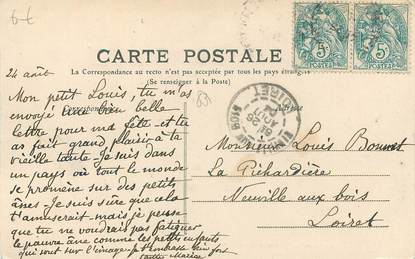 6-€
CARTE POSTALE
La Correspondance au recto n'est pas acceptée par tous les pays étrangers
(Se renseigner à la Poste)
Correspondance
Adresse
24 août
Mon petit Louis, tu m'as
envoyé une bien belle
lettre pour ma fête et tu
as fait grand plaisir à ta
vieille tante. Je suis dans
un pays où tout le monde
se promène sur des petits
ânes. Je suis sûre que cela
t'amuserait mais je pense
que tu ne voudrais pas fatiguer
le pauvre âne comme les petits enfants
qui sont sur l'image. Je t'embrasse bien fort
tante Marie
Monsieur Louis
La Pichardière
Neuville aux bois
Loiret
5c
5c
LOIRET